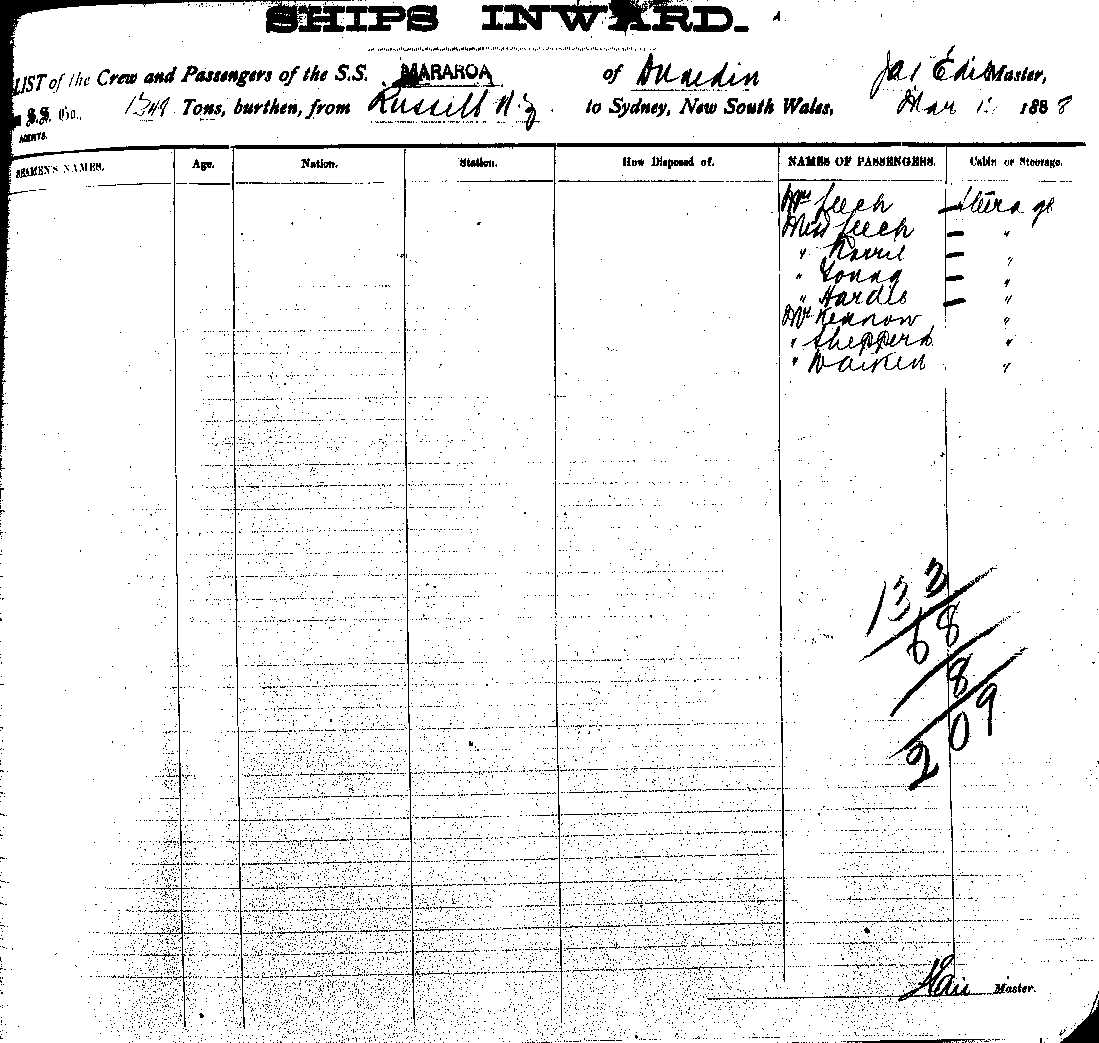 SHIPS INWARD.
LIST of the Crew and Passengers of the S.S. MARAROA of Dunedin Jas Edie Master,
S.S. Co., 1349 Tons, burthen, from Russell N.Z to Sydney, New South Wales, Mar 1 1888
AGENTS.
SEAMEN'S NAMES. Age. Nation. Station. How Disposed of. NAMES OF PASSENGERS. Cabin or Steerage.
Mrs Leech Steerage
Miss Leech "
" "
" Young "
" Hardie "
Mr "
" Shepperd "
" "
133
68
8
209
Master.